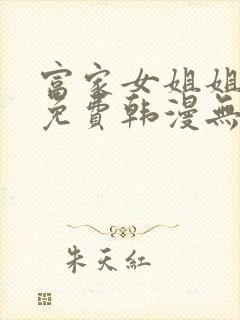 富家女姐姐
免費韩漫無
朱天紅